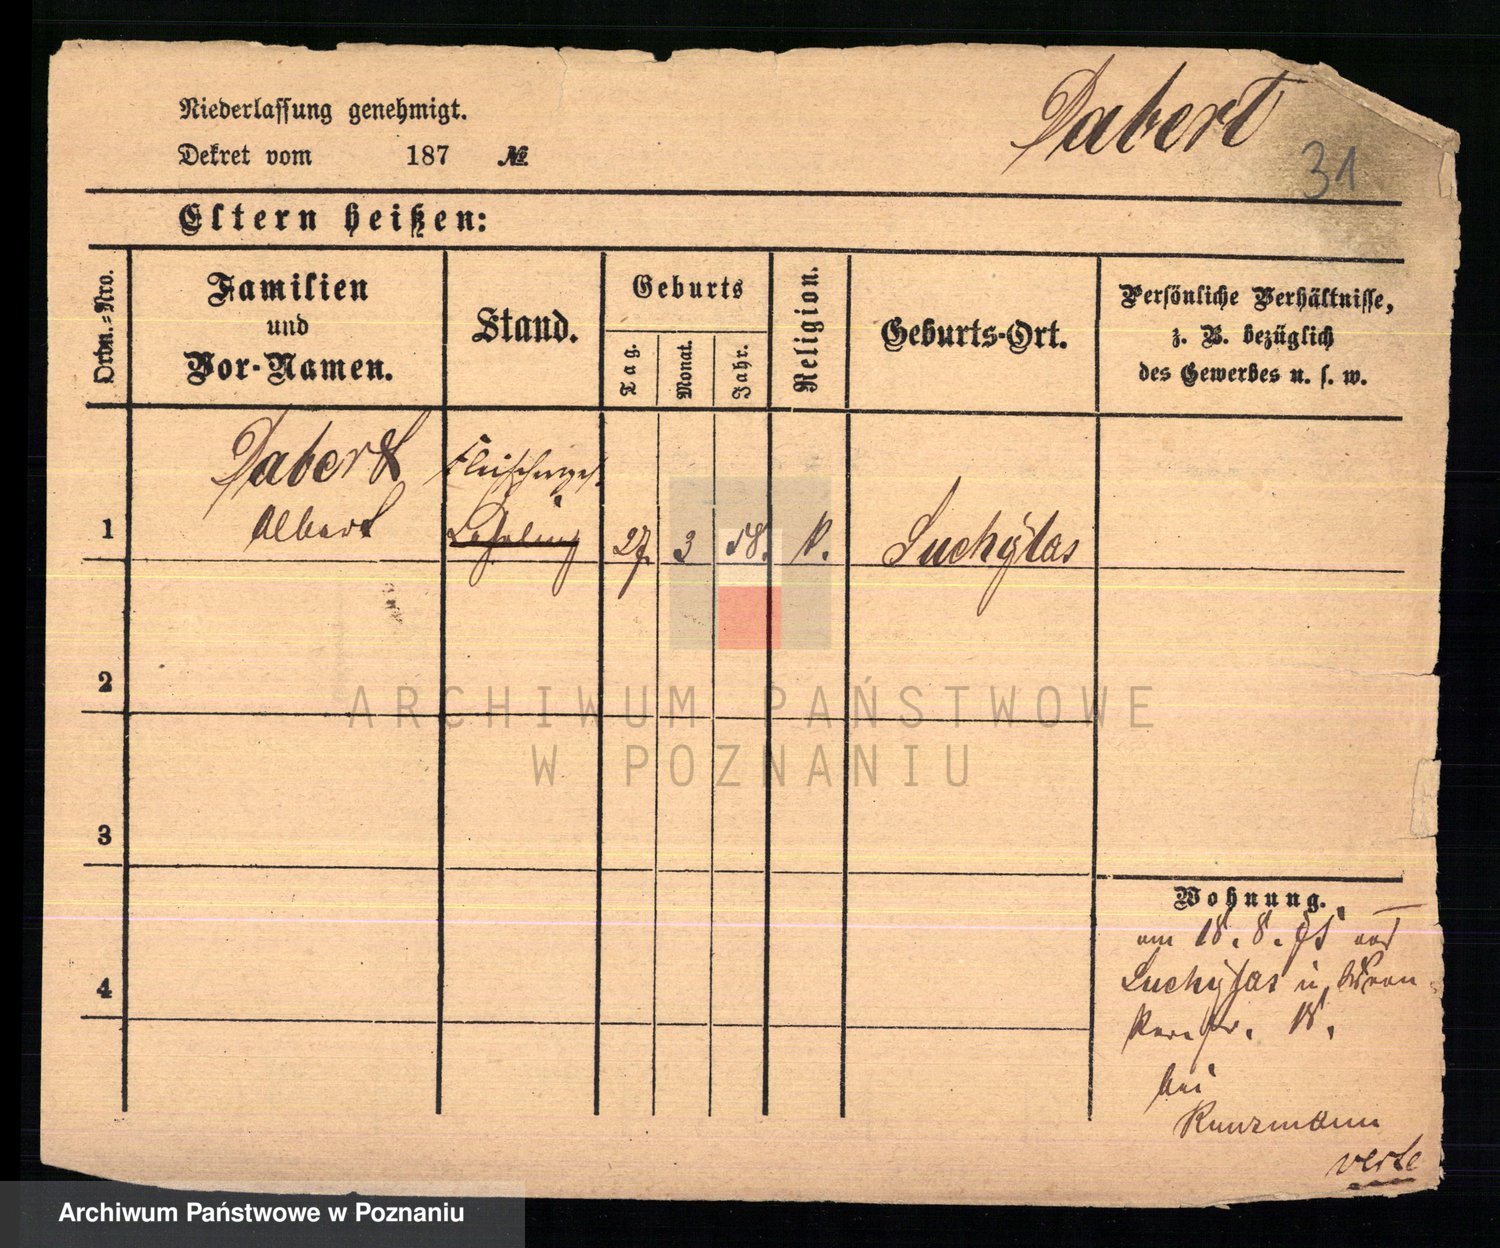 Niederlassung genehmigt.
Dekret vom 187 №
Dabert
31
Eltern heißen:
Ordn.-Nro.
Familien
und
Vor-Namen.
Stand.
Geburts
Tag.
Monat.
Jahr.
Religion.
Geburts-Ort.
Persönliche Verhältnisse,
z. B. bezüglich
des Gewerbes u. s. w.
Dabert Fleischerges.
1 Albert Lehrling 27. 3 58. k. Suchylas
2
3
4
Wohnung.
am 18. 8. 75 aus
Suchylas n. Wron
kerstr. 18.
bei
Kunzmann
verte
ARCHIWUM PAŃSTWOWE
W POZNANIU
Archiwum Państwowe w Poznaniu